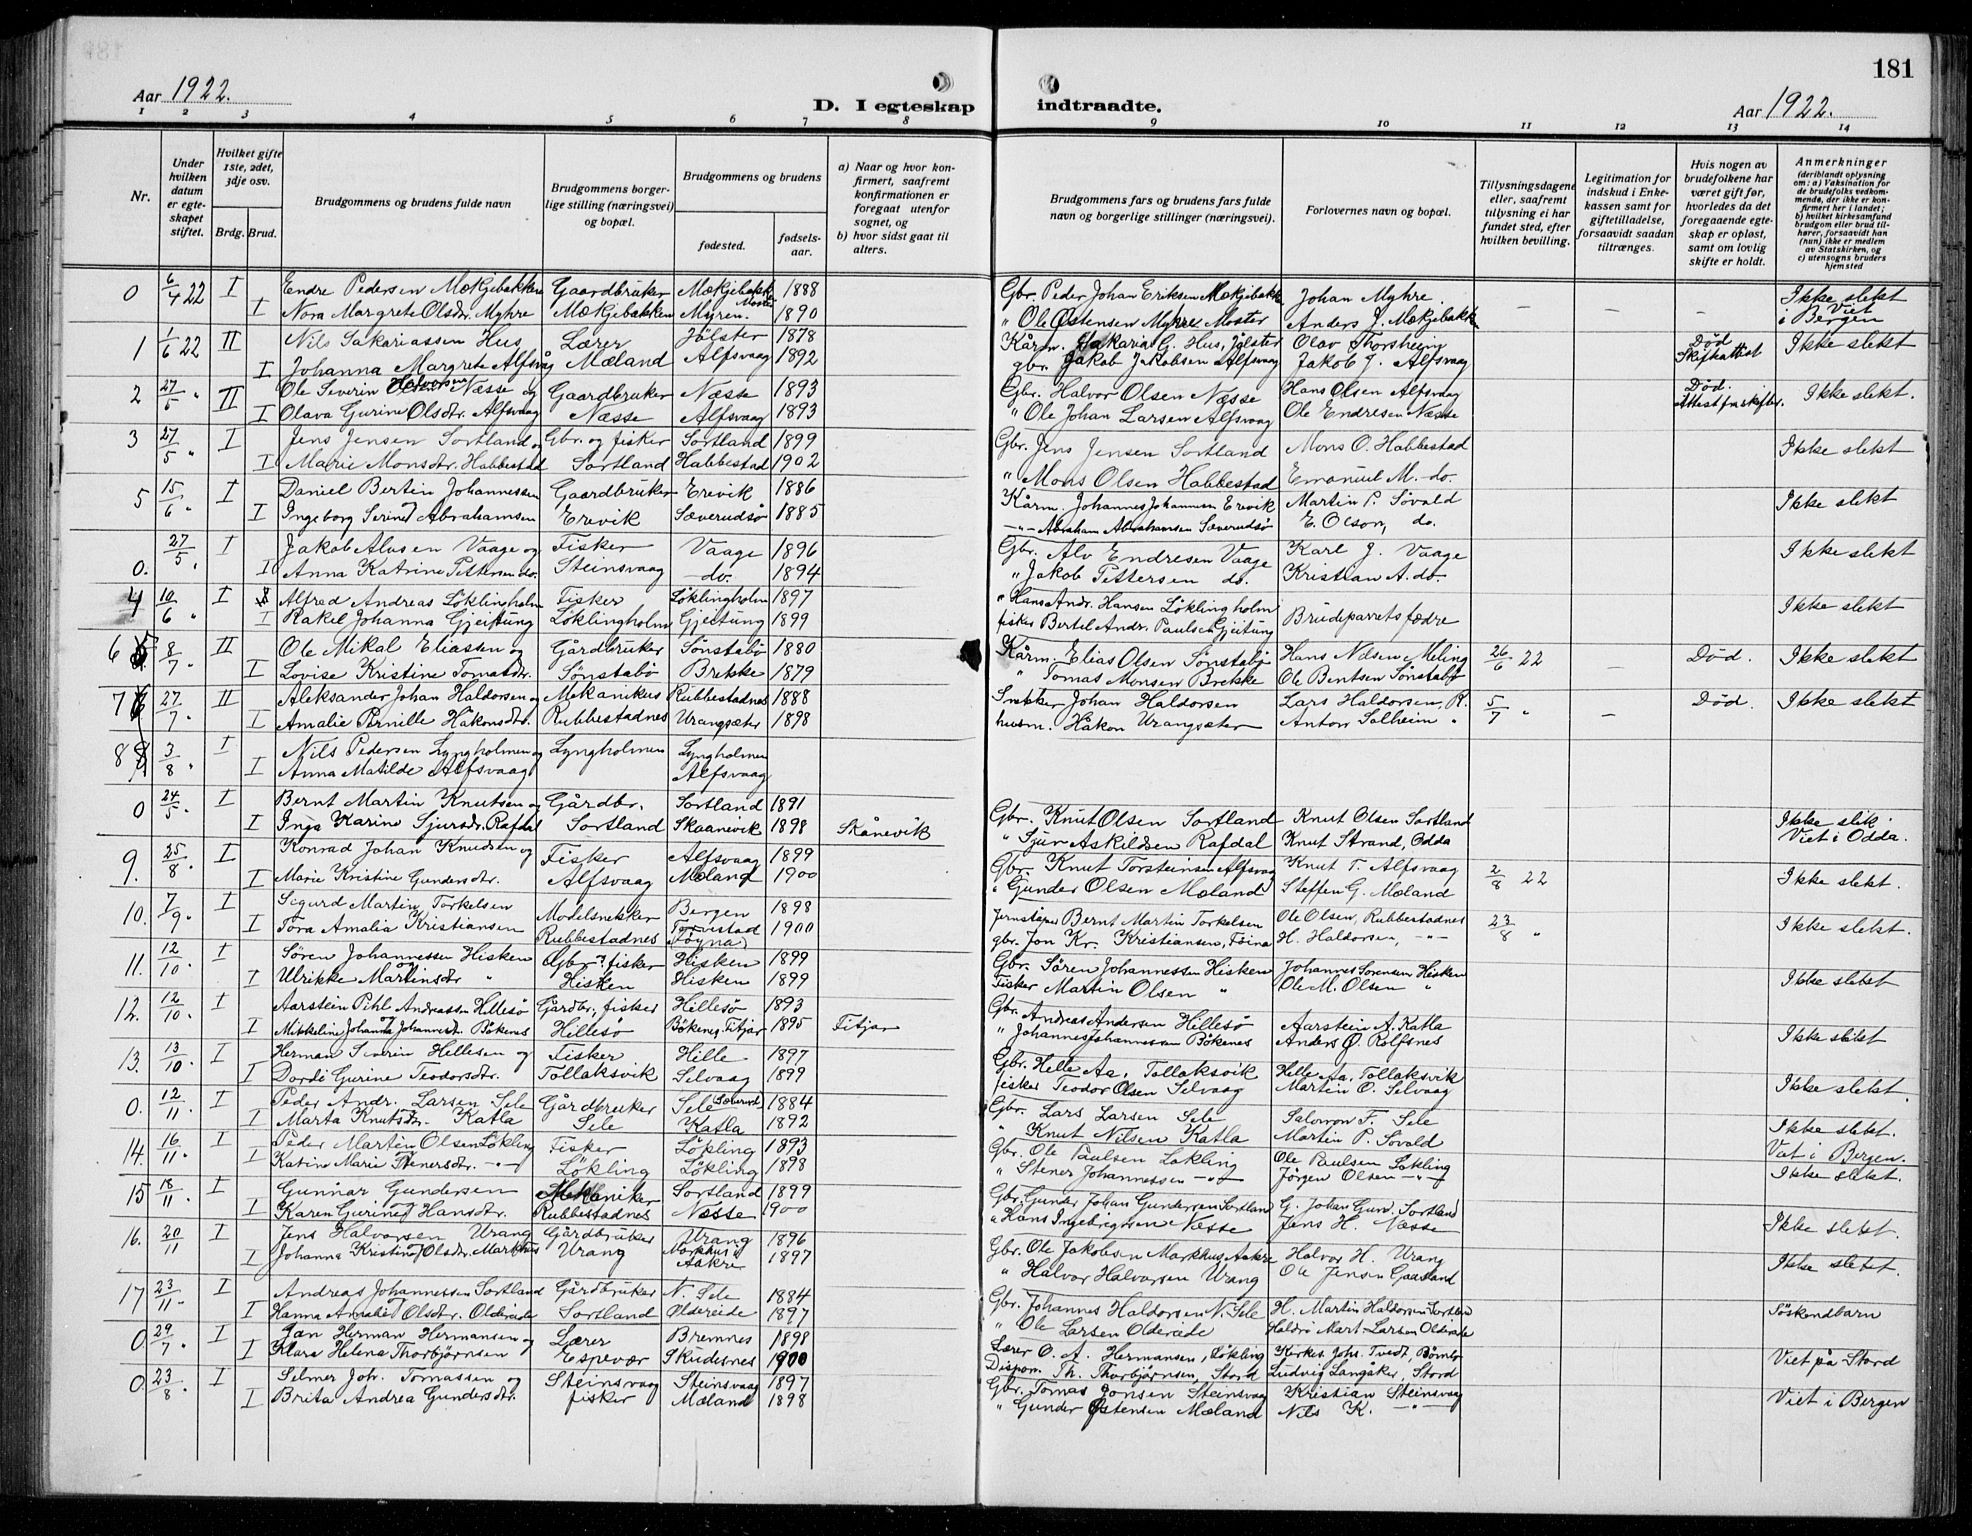 181
Aar 1922.
D. I egteskap indtraadte.
Aar 1922.
1 2 3 4 5 6 7 8 9 10 11 12 13 14
Nr.
Under hvilken datum er egteskapet stiftet.
Hvilket gifte 1ste, 2det, 3dje osv.
Brdg. Brud.
Brudgommens og brudens fulde navn
Brudgommens borgerlige stilling (næringsvei) og bopæl.
Brudgommens og brudens
fødested.
fødselsaar.
a) Naar og hvor konfirmert, saafremt konfirmationen er foregaat utenfor sognet, og
b) hvor sidst gaat til alters.
Brudgommens fars og brudens fars fulde navn og borgerlige stillinger (næringsvei).
Forlovernes navn og bopæl.
Tillysningsdagene eller, saafremt tillysning ei har fundet sted, efter hvilken bevilling.
Legitimation for indskud i Enkekassen samt for giftetilladelse, forsaavidt saadan tiltrænges.
Hvis nogen av brudefolkene har været gift før, hvorledes da det foregaaende egteskap er opløst, samt om lovlig skifte er holdt.
Anmerkninger
(deriblandt oplysning om: a) Vaksination for de brudefolks vedkommende, der ikke er konfirmert her i landet; b) hvilket kirkesamfund brudgom eller brud tilhører, forsaavidt han (hun) ikke er medlem av Statskirken, og c) utensogns bruders hjemsted
0 6/4 22 I Endre Pedersen Mækjebakken Gaardbruker Mækjebakk 1888 Gbr. Peder Johan Eriksen Mækjebakk Johan Myhre – – – Ikke slekt
I Nora Margrete Olsdtr. Myhre Mækjebakken Myren. Moster 1890 " Ole Østensen Myhre Moster Anders J. Mækjebakk Viet i Bergen
1 1/6 22 II Nils Sakariassen Hus Lærer Jølster 1878 Kårm. Sakarias G. Hus, Jølster Olav Thorsheim Død Skifteattest Ikke slekt
I Johanna Margrete Alfsvåg Mæland Alfsvaag 1892 gbr. Jakob Jakobsen Alfsvaag Jakob J. Alfsvaag
2 27/5 " II Ole Severin Halvorsen Næsse og Gaardbruker Næsse 1893 Gbr. Halvor Olsen Næsse Hans Olsen Alfsvaag Død. Attest fra skifter. Ikke slekt.
I Olava Gurine Olsdtr. Alfsvaag Næsse Alfsvaag 1893 " Ole Johan Larsen Alfsvaag Ole Endresen Næsse
3 27/5 " I Jens Jensen Sortland og Gbr. og fisker Sortland 1899 Gbr. Jens Jensen Sortland Mons O. Habbestad Ikke slekt
I Marie Monsdtr. Habbestad Sortland Habbestad 1902 " Mons Olsen Habbestad Emanuel M. do.
5 15/6 " I Daniel Bertin Johannessen Gaardbruker Erevik 1886 Kårm. Johannes Johannessen Erevik Martin P. Søvold Ikke slekt
I Ingeborg Serine Abrahamsen Erevik Sæverudsø 1885 –"– Abraham Abrahamsen Sæverudsø E. Olson, do.
0. 27/5 " I Jakob Alvsen Vaage og Fisker Vaage 1896 Gbr. Alv Endresen Vaage Karl J. Vaage Ikke slekt
I Anna Katrine Pettersen do. Steinsvaag –do.– 1894 " Jakob Pettersen do. Kristian A. do.
4 10/6 " I Alfred Andreas Løklingholm Fisker Løklingholm 1897 " Hans Andr. Hansen Løklingholm Brudeparrets fædre Ikke slekt
I Rakel Johanna Gjeitung Løklingholm Gjeitung 1899 fisker Bertel Andr. Paulsen Gjeitung
6 8/7 " II Ole Mikal Eliassen og Gårdbruker Sønstabø 1880 Kårm. Elias Olsen Sønstabø Hans Nilsen Meling 26/6 22 – Død. Ikke slekt
I Lovise Kristine Tomasdtr. Sønstabø Brekke 1879 " Tomas Monsen Brekke Ole Bentsen Sønstabø
7 27/7 " II Aleksander Johan Haldorsen og Mekanikus Rubbestadnes 1888 Snekker Johan Haldorsen Lars Haldorsen, R. 5/7 " – Død. Ikke slekt
I Amalie Pernille Håkonsdtr. Rubbestadnes Urangsæter 1898 husm. Håkon Urangsæter Anton Solheim "
8 3/8 " I Nils Pedersen Lyngholmen og Lyngholmen Lyngholmen
I Anna Matilde Alfsvaag Alfsvaag
0 24/5 " I Bernt Martin Knutsen og Gårdbr. Sortland 1891 Gbr. Knut Olsen Sortland Knut Olsen Sortland Ikke slek
I Inga Karine Sjursdtr. Rafdal Sortland Skaanevik 1898 Skånevik " Sjur Askildsen Rafdal Knut Strand, Odda Viet i Odda.
9. 25/8 " I Konrad Johan Knudsen og Fisker Alfsvaag 1899 Gbr. Knut Torsteinsen Alfsvaag Knut T. Alfsvaag 2/8 22 Ikke slekt.
I Marie Kristine Gundersdtr. Alfsvaag Mæland 1900 " Gunder Olsen Mæland Steffen G. Mæland
10. 7/9 " I Sigurd Martin Torkelsen Modelsnekker Bergen 1898 Jernstøper Bernt Martin Torkelsen Ole Olsen, Rubbestadnes 23/8 " Ikke slekt.
I Tora Amalia Kristiansen Rubbestadnes Torvestad (Føyna) 1900 gbr. Jon Kr. Kristiansen, Föina H. Haldorsen, –"–
11. 12/10 " I Søren Johannessen Hisken Gbr. og fisker Hisken 1899 Gbr. Sören Johannessen Hisken Johannes Sørensen Hisken Ikke slekt
I Ulrikke Martinsdtr " Hisken Hisken 1899 Fisker Martin Olsen " Ole M. Olsen "
12. 12/10 " I Aarstein Pihl Andreassen Hillesø og Gårdbr., fisker Hillesø 1893 Gbr. Andreas Andersen Hillesø Aarstein A. Katla Ikke slekt
I Mikkeline Johanna Johannesdtr Bökenes Hillesö Bökenes, Fitjar 1895 Fitjar " Johannes Johannessen Bökenes Anders Ø. Rolfsnes
13. 13/10 " I Herman Severin Hellesen og Fisker Hille 1897 Gbr. Helle Aa. Tollaksvik Helle Aa. Tollaksvik Ikke slekt
I Dorde Gurine Teodorsdtr. Tollaksvik Selvaag 1899 fisker Teodor Olsen Selvaag Martin O. Selvaag
0. 12/11 " I Peder Andr. Larsen Sele Gårdbruker Sele 1884 Gbr. Lars Larsen Sele Salomon F. Sele Ikke slekt.
I Marta Knutsdtr. Katla Sele Katla 1892 " Knut Nilsen Katla Martin P. Søvold Viet i Bergen.
14. 16/11 " I Peder Martin Olsen Løkling Fisker Løkling 1893 Gbr. Ole Paulsen Løkling Ole Paulsen Løkling Ikke slekt.
I Katrine Marie Stenersdtr. –"– Løkling Løkling 1898 " Stener Johannessen –"– Jörgen Olsen –"–
15 18/11 " I Gunnar Gundersen Mekaniker Sortland 1899 Gbr. Gunder Johan Gundersen Sortland G. Johan Gund. Sortland Ikke slekt.
I Karen Gurine Hansdtr. Rubbestadnes Næsse 1900 " Hans Ingebrigtsen Næsse Jens H. Næsse
16. 20/11 I Jens Halvorsen Urang Gårdbruker Urang 1896 Gbr. Ole Jakobsen Markhus Aakre Halvor H. Urang Ikke slekt.
I Johanna Kristine Olsdtr. Markhus Urang Markhus i Aakre 1897 " Halvor Halvorsen Urang Ole Jensen Gaasland
17 23/11 " I Andreas Johannessen Sortland Gårdbruker N. Sele 1884 Gbr. Johannes Haldorsen N. Sele H. Martin Haldorsen Sortland Søskendbarn
I Hanna Amalie Olsdtr. Oldereide Sortland Oldereide 1897 " Ole Larsen Oldereide Haldro Mart. Larsen Oldereide
0 29/7 " I Jan Herman Hermansen og Lærer Bremnes 1898 Lærer O. A. Hermansen, Løkling Kirkes. Johs. Tvedt, Bömlo Viet på Stord
I Klara Helena Thorbjørnsen Espevær Skudesnes 1900 Dispon. Th. Thorbjørnsen, Stord Ludvig Langåker, Stord
0. 23/8 " I Selmer Joh. Tomassen og Steinsvaag Steinsvaag 1897 Gbr. Tomas Jonsen Steinsvaag Kristian Steinsvaag Viet i Bergen
I Brita Andrea Gundersdtr. fisker Mæland 1898 " Gunder Østensen Mæland Nils K. –"–